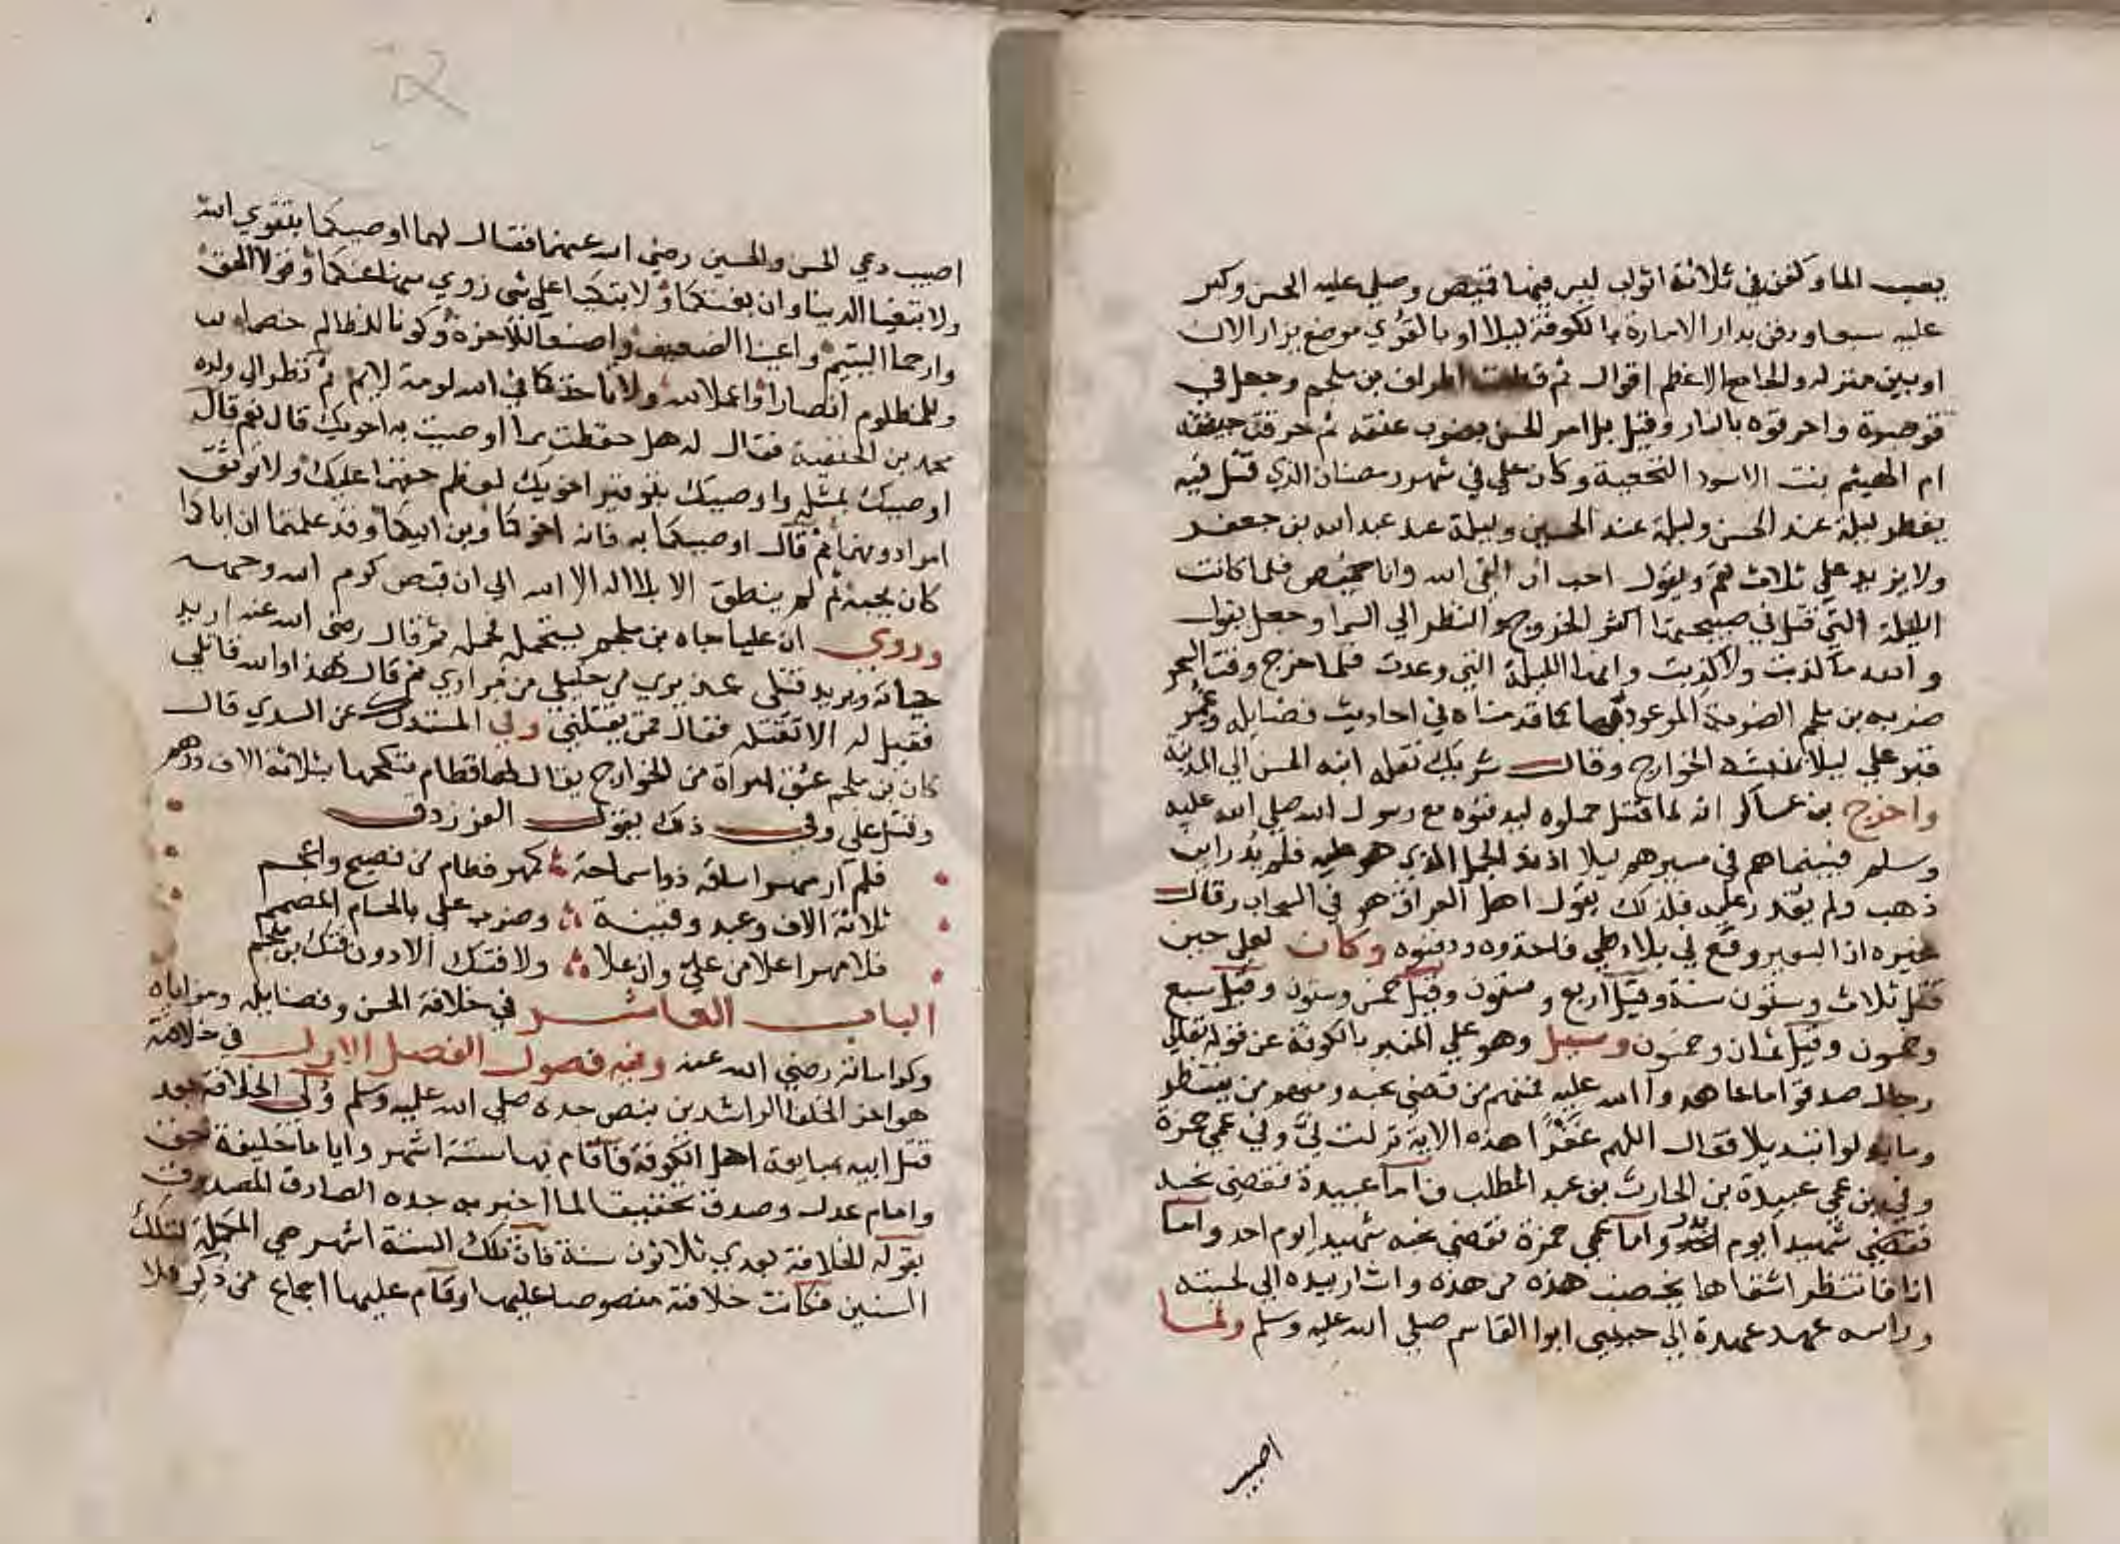 يصب الما وكفن في ثلاثة اثواب ليس فيها قميص وصلي عليه الحسن وكبر
عليه سبعا ودفن بدار الامارة بالكوفة ليلا او بالغري موضع يزار الان
او بين منزله والجامع الاعظم اقوال ثم قطعت اطراف بن ملجم وجعل في
قوصرة واحرقوه بالنار وقيل بل امر الحسن بضرب عنقه ثم حرقت جيفته
ام الهيثم بنت الاسود النخعية وكان علي في شهر رمضان الذي قتل فيه
يفطر ليلة عند الحسن وليلة عند الحسين وليلة عند عبد الله بن جعفر
ولا يزيد علي ثلاث لقم ويقول احب ان القي الله وانا خميص فلما كانت
الليلة التي قتل في صبيحتها اكثر الخروج والنظر الي السما وجعل يقول
والله ما كذبت ولا كذبت وانها الليلة التي وعدت فلما خرج وقت السحر
ضربه بن ملجم الضربة الموعود بها كما قدمناه في احاديث فضايله وعمي
قبر علي ليلا ينبشه الخوارج وقال شريك نقله ابنه الحسن الي المدينة
واخرج بن عساكر انه لما قتل حملوه ليدفنوه مع رسول الله صلي الله عليه
وسلم فبينما هم في مسيرهم ليلا اذ ند الجمل الذي هو عليه فلم يدر اين
ذهب ولم يقدر عليه فلذلك يقول اهل العراق هو في السحاب وقال
غيره ان البعير وقع في بلاد طي فاخذوه ودفنوه وكان لعلي حين
قتل ثلاث وستون سنة وقيل اربع وستون وقيل خمس وستون وقيل سبع
وخمسون وقيل ثمان وخمسون وسيل وهو علي المنبر بالكوفة عن قوله تعالي
رجال صدقوا ما عاهدوا الله عليه فمنهم من قضي نحبه ومنهم من ينتظر
وما بدلوا تبديلا فقال اللهم غفرا هذه الاية نزلت في وفي عمي حمزة
وفي بن عمي عبيدة بن الحارث بن عبد المطلب فاما عبيدة فقضي نحبه
فقضي شهيدا يوم بدر واما عمي حمزة فقضي نحبه شهيدا يوم احد واما
انا فانتظر اشقاها يخضب هذه من هذه واشار بيده الي لحيته
وراسه عهد عهدة الي حبيبي ابوا القاسم صلي الله عليه وسلم ولما
اصيب
اصيب دعي الحسن والحسين رضي الله عنهما فقال لهما اوصيكما بتقوي الله
ولا تبغيا الدنيا وان بغتكما ولا تبكيا علي شي زوي منها عنكما وقولا الحق
وارحما اليتيم واعينا الضعيف واصنعا للاخرة وكونا للظالم خصما
وللمظلوم انصارا واعملا لله ولا تاخذكما في الله لومة لايم ثم نظر الي ولده
محمد بن الحنفية فقال له هل حفظت ما اوصيت به اخويك قال نعم قال
اوصيك بمثله واوصيك بتوقير اخويك لعظم حقهما عليك ولا توثق
امرا دونهما ثم قال اوصيكما به فانه اخوكما وبن ابيكما وقد علمتما ان اباكما
كان يحبه ثم لم ينطق الا بلا اله الا الله الي ان قبض كرم الله وجهه
وروي ان عليا جاه بن ملجم يستحمله فحمله ثم قال رضي الله عنه اريد
حياته ويريد قتلي عذيري من خليلي من مرادي ثم قال هذا والله قاتلي
فقيل له الا تقتله فقال فمن يقتلني وفي المستدرك عن السدي قال
كان بن ملجم عشق امراة من الخوارج يقال لها قطام فنكحها بثلاثة الاف درهم
وقتل علي وفي ذلك يقول الفرزدق
فلم ار مهرا ساقه ذوا سماحة كمهر قطام من فصيح واعجم
ثلاثة الاف وعبد وقينة وضرب علي بالحسام المصمم
فلا مهرا علا من علي وان علا ولا فتك الا دون فتك بن ملجم
الباب العاشر في خلافة الحسن وفضايله ومزاياه
وكراماته رضي الله عنه وفيه فصول الفصل الاول في خلافة
هو اخر الخلفا الراشدين بنص جده صلي الله عليه وسلم ولي الخلافة بعد
قتل ابيه بمبايعة اهل الكوفة فاقام بها ستة اشهر واياما خليفة حق
وامام عدل وصدق تحقيقا لما اخبر به جده الصادق المصدوق
بقوله الخلافة بعدي ثلاثون سنة فان تلك الستة اشهر هي المكملة لتلك
السنين فكانت خلافته منصوصا عليها وقام عليها اجماع من ذكر فلا